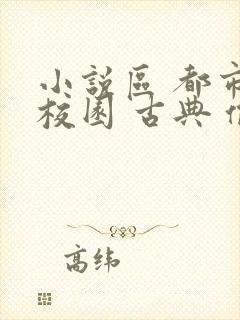 小說區 都市
校園 古典
高纬